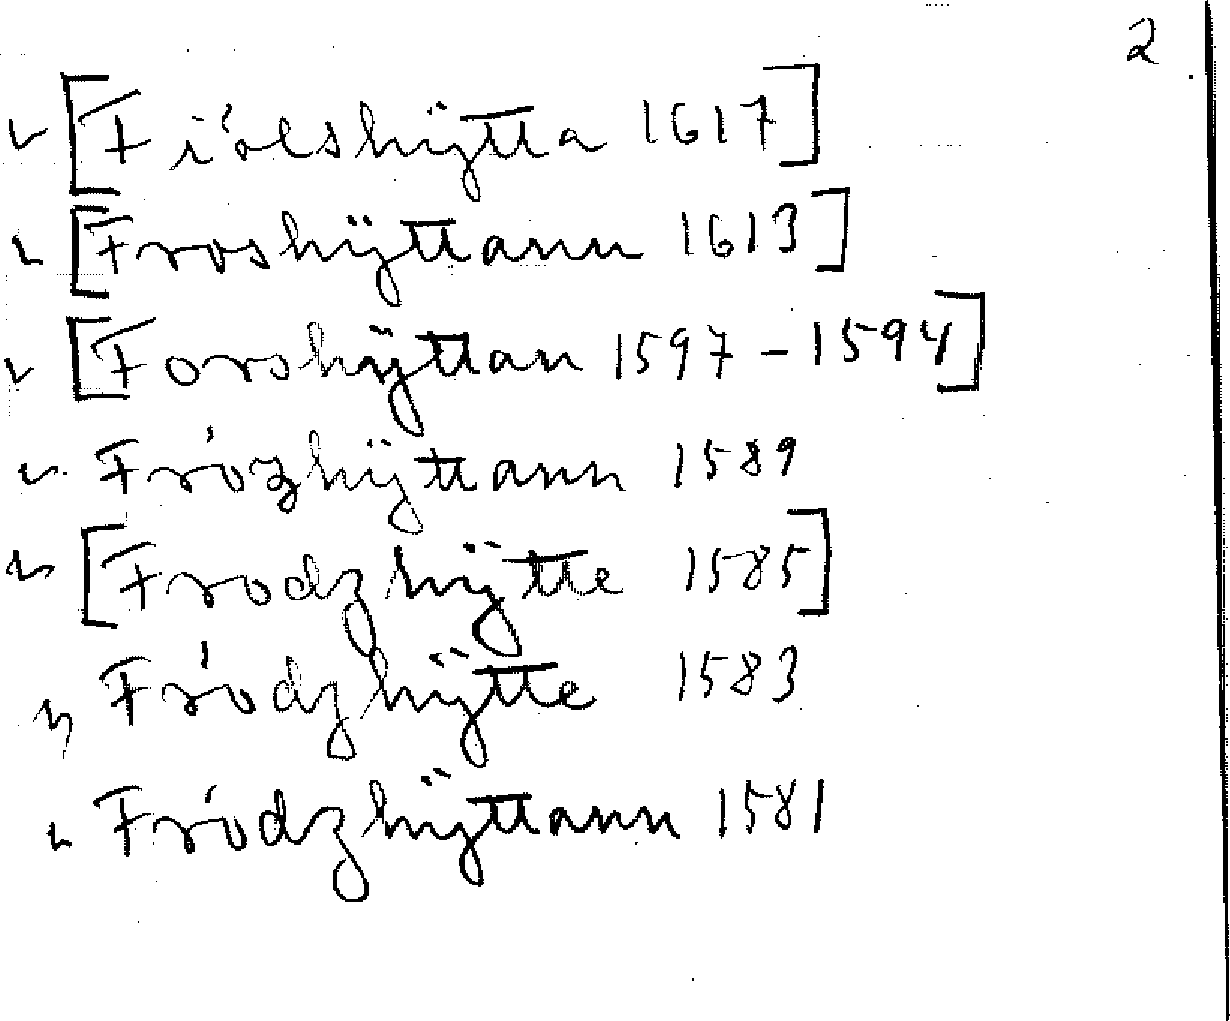 2
[Fiólshÿtta 1617]
[Froshÿttann 1613]
[Forshÿttan 1597-1594]
Frózhÿttann 1589
[Frodzhÿtte 1585]
Fródzhÿtte 1583
Fródzhÿttann 1581